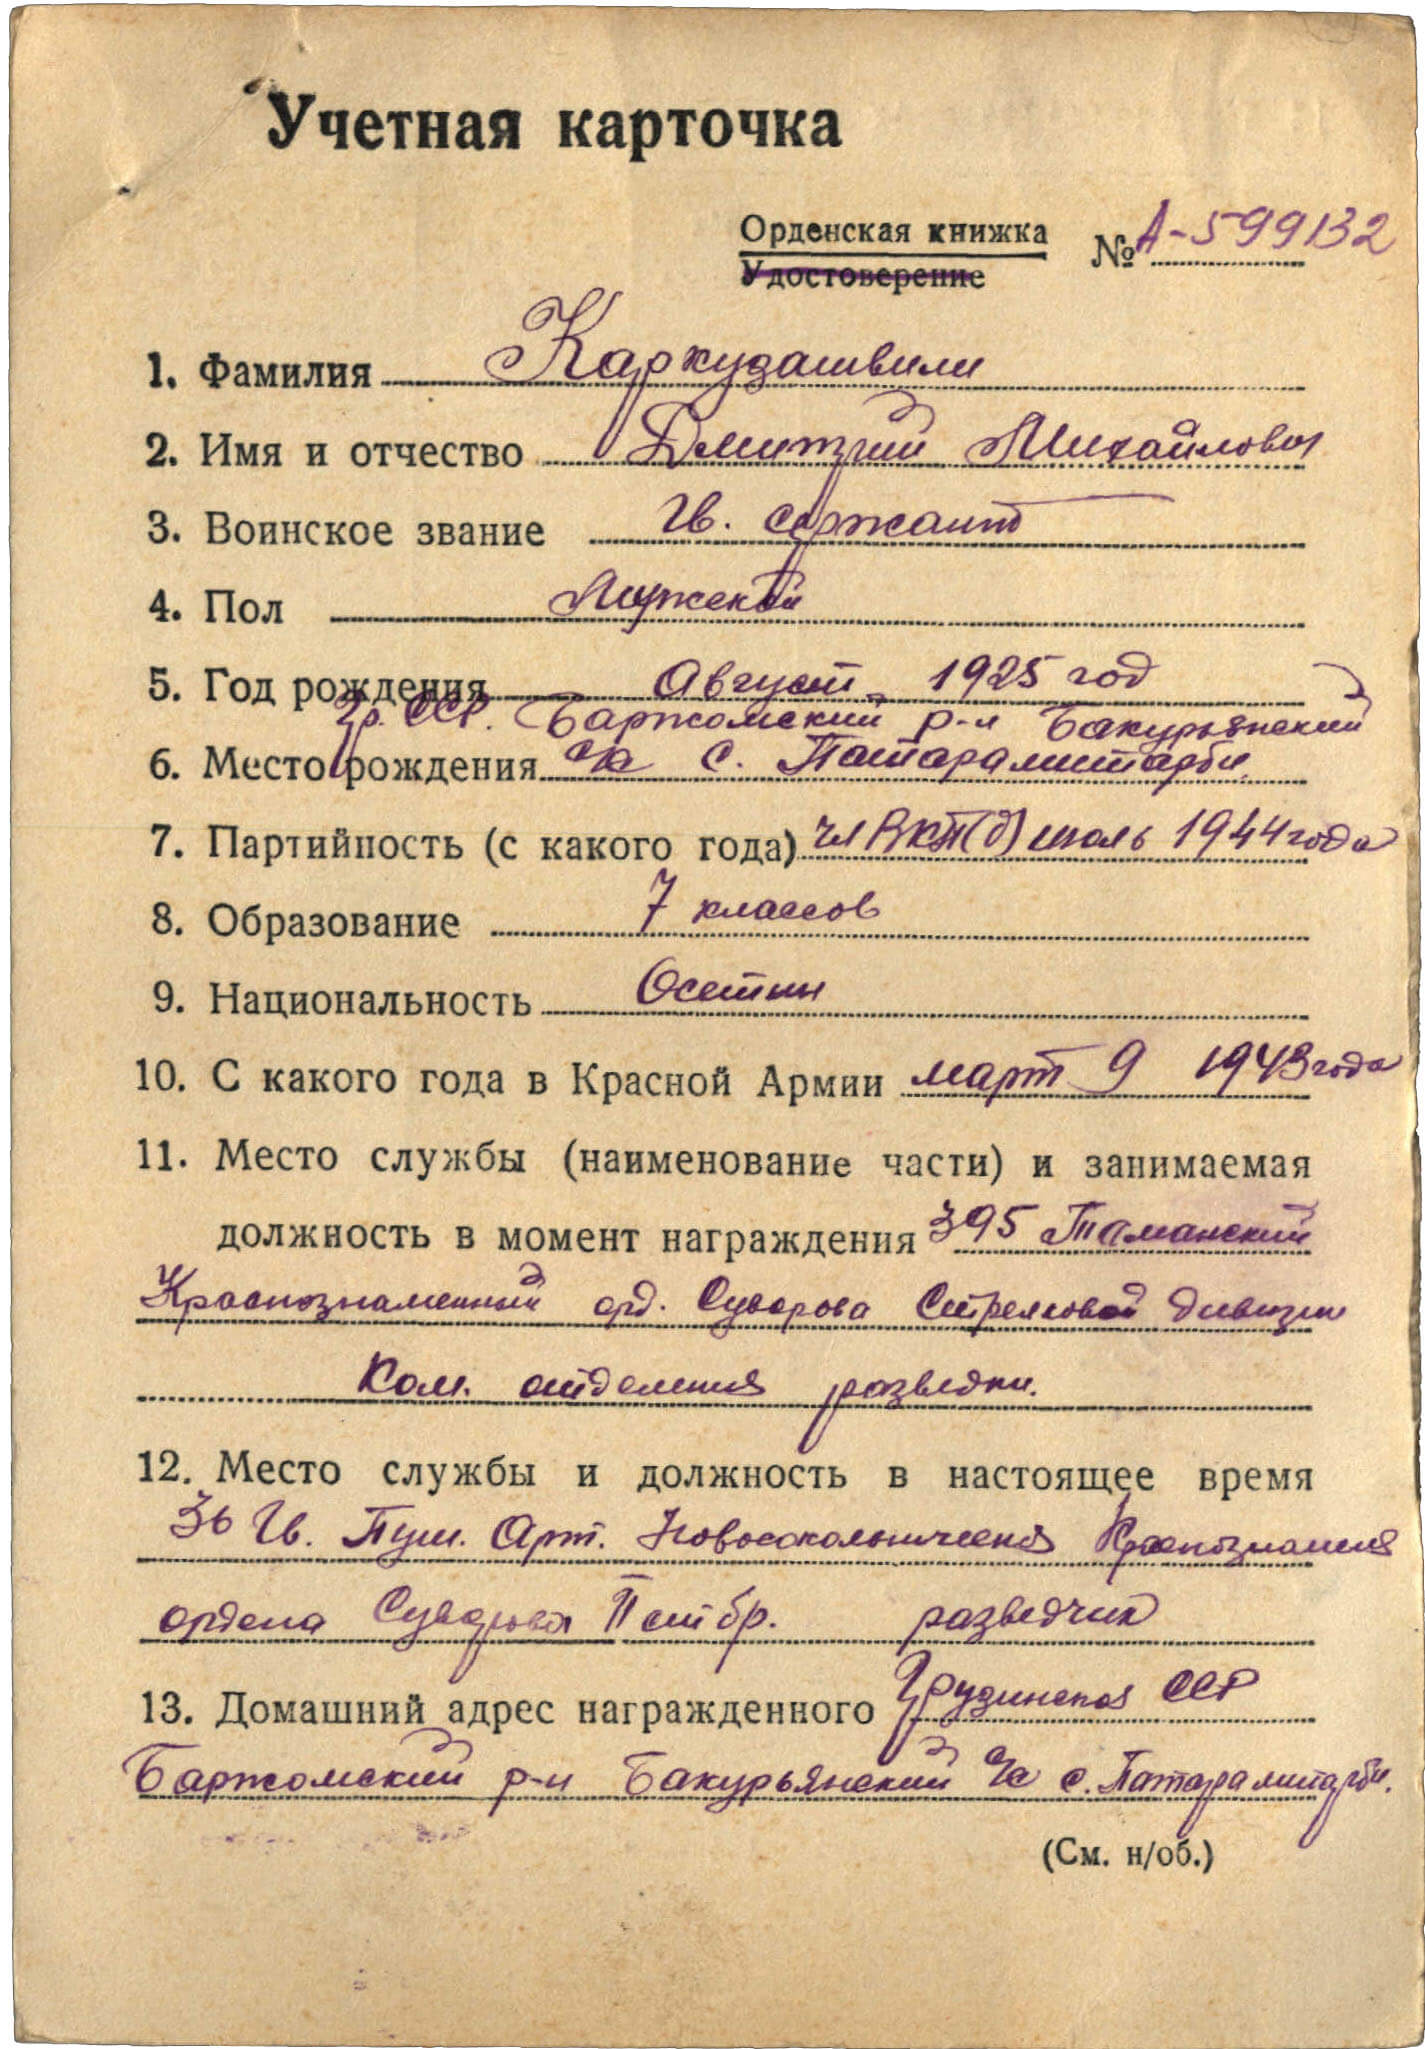 Учетная карточка
Орденская книжка № А-599132
Удостоверение
1. Фамилия Каркузашвили
2. Имя и отчество Дмитрий Михайлович
3. Воинское звание Гв. сержант
4. Пол Мужской
5. Год рождения Август 1925 год
Гр. ССР. Баржомский р-н Бакурьянский
6. Место рождения с/с с. Патарамитарби
7. Партийность (с какого года) чл ВКП(б) июль 1944 года
8. Образование 7 классов
9. Национальность Осетин
10. С какого года в Красной Армии март 9 1943 года
11. Место службы (наименование части) и занимаемая
должность в момент награждения 395 Таманский
Краснознаменный орд. Суворова Стрелковой дивизии
Ком. отделения разведки.
12. Место службы и должность в настоящее время
36 Гв. Пуш. Арт. Новосокольническая Краснознамения
ордена Суворова II ст бр. разведчик
13. Домашний адрес награжденного Грузинская ССР
Баржомский р-н Бакурьянский с/с с. Патарамитарби.
(См. н/об.)